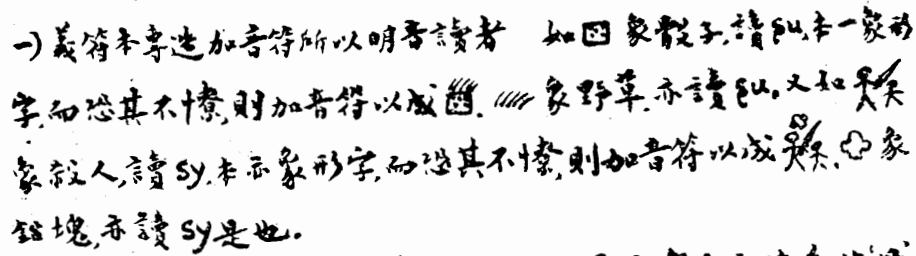 一)義符本專造加音符所以明音讀者 如 象骰子,讀ʂu,本一象形
字,而恐其不憭,則加音符以成 , 象野草,亦讀ʂu。又如
象殺人,讀sy,本亦象形字,而恐其不憭,則加音符以成 , 象
鉛塊,亦讀sy是也。